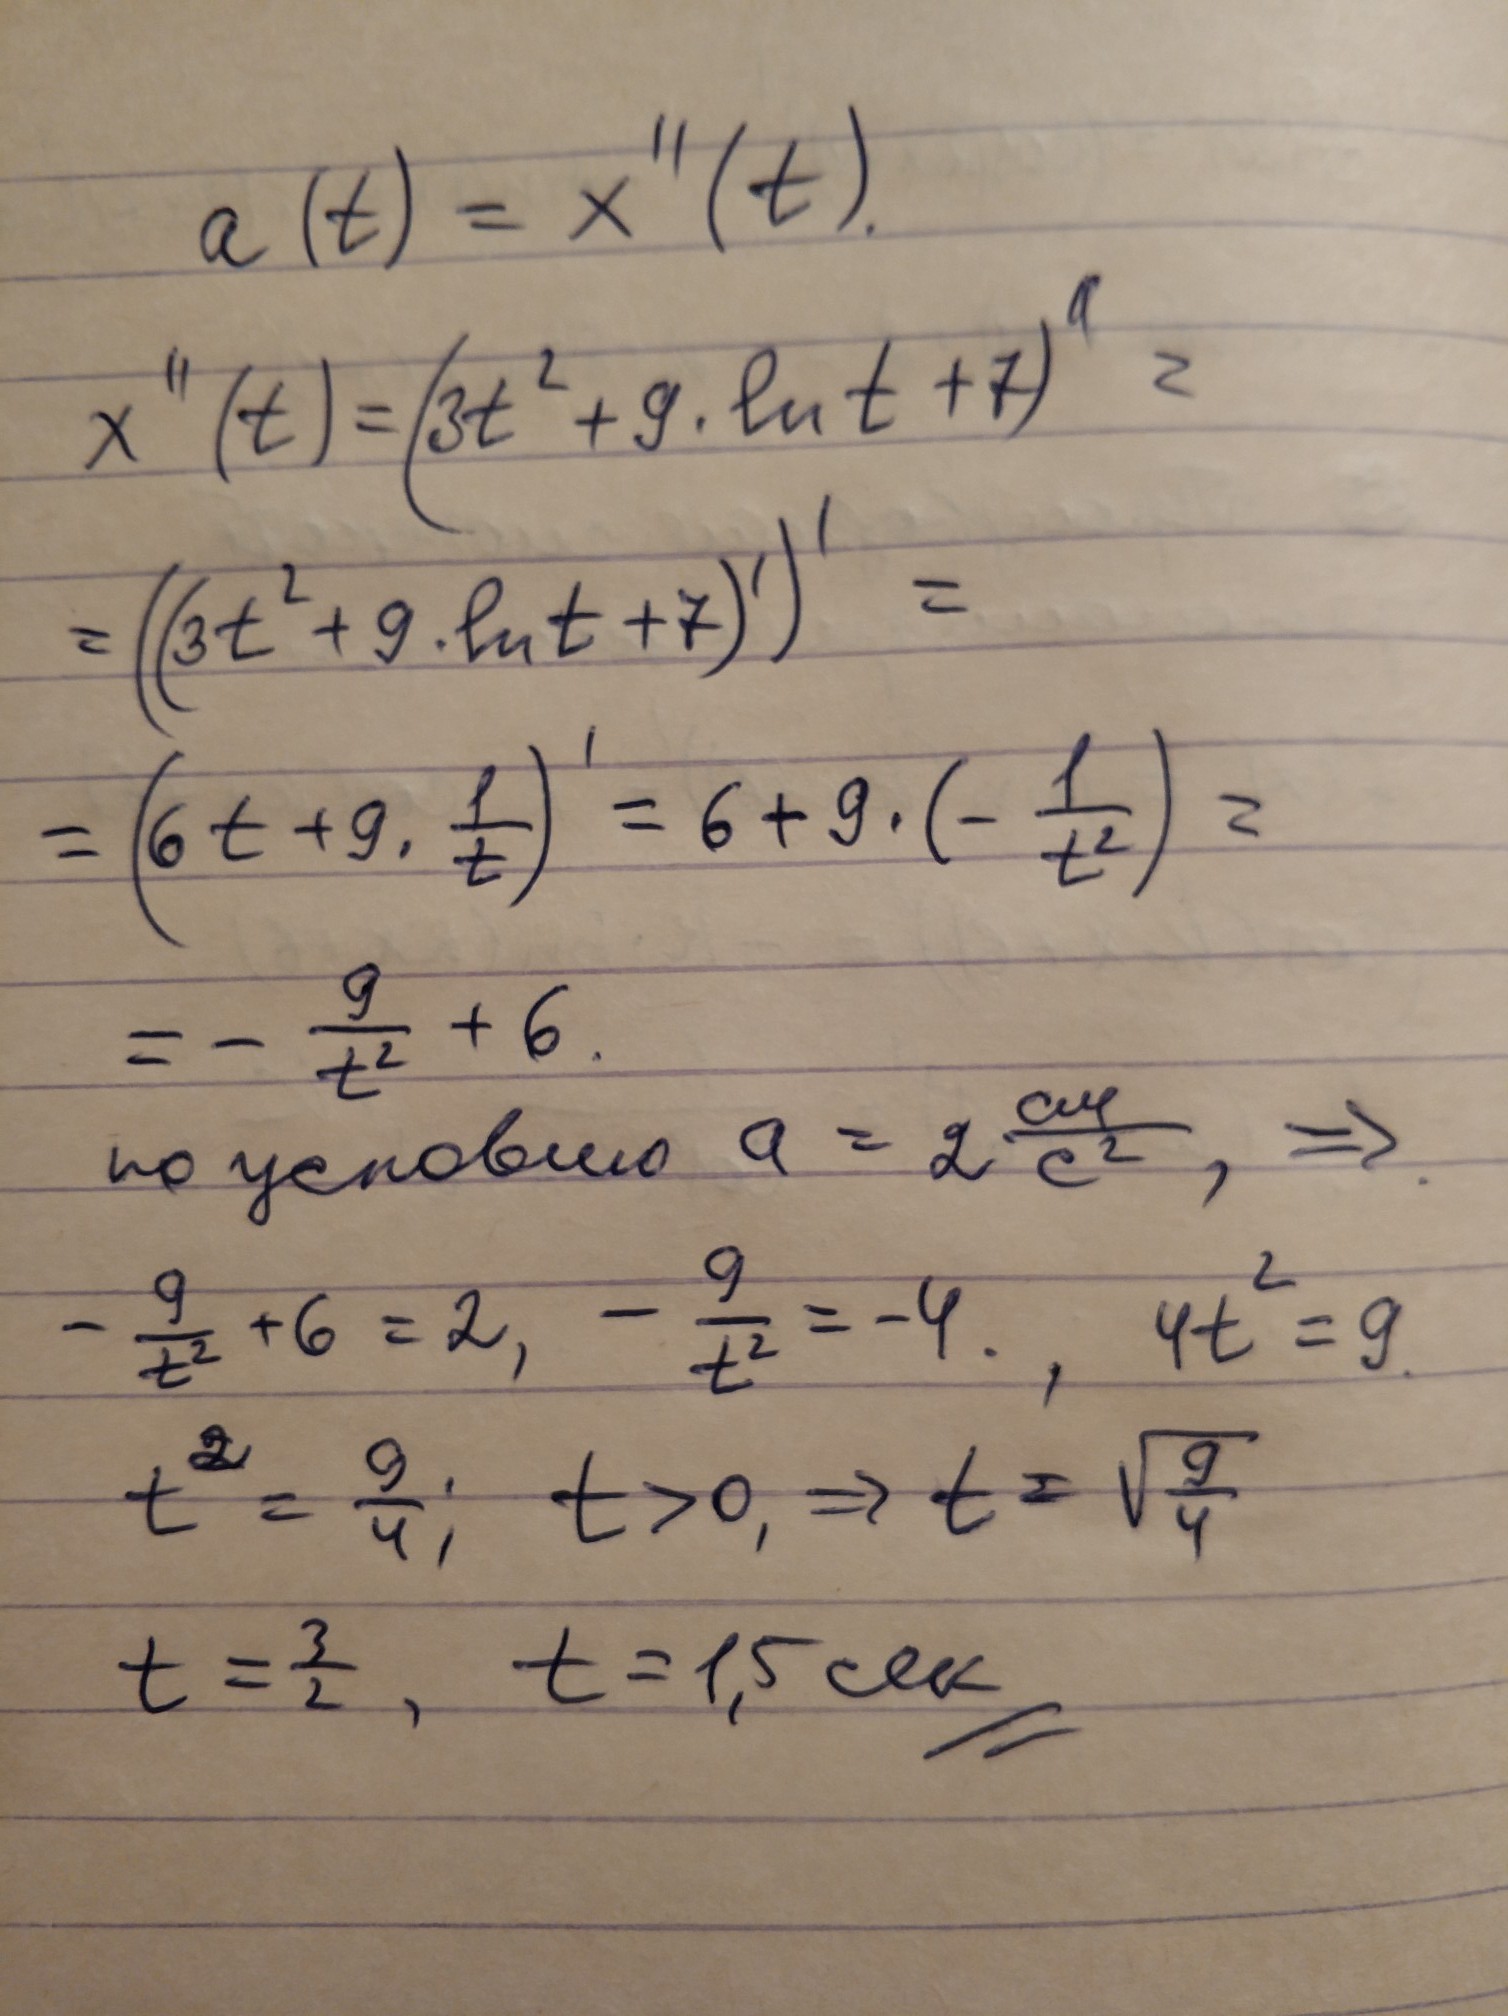 a(t) = x''(t).
x''(t) = (3t² + 9 · ln t + 7)'' =
= ((3t² + 9 · ln t + 7)')' =
= (6t + 9 · 1/t)' = 6 + 9 · (- 1/t²) =
= - 9/t² + 6.
по условию a = 2 см/с², ⇒.
- 9/t² + 6 = 2, - 9/t² = -4. , 4t² = 9.
t² = 9/4; t > 0, ⇒ t = √(9/4)
t = 3/2, t = 1,5 сек